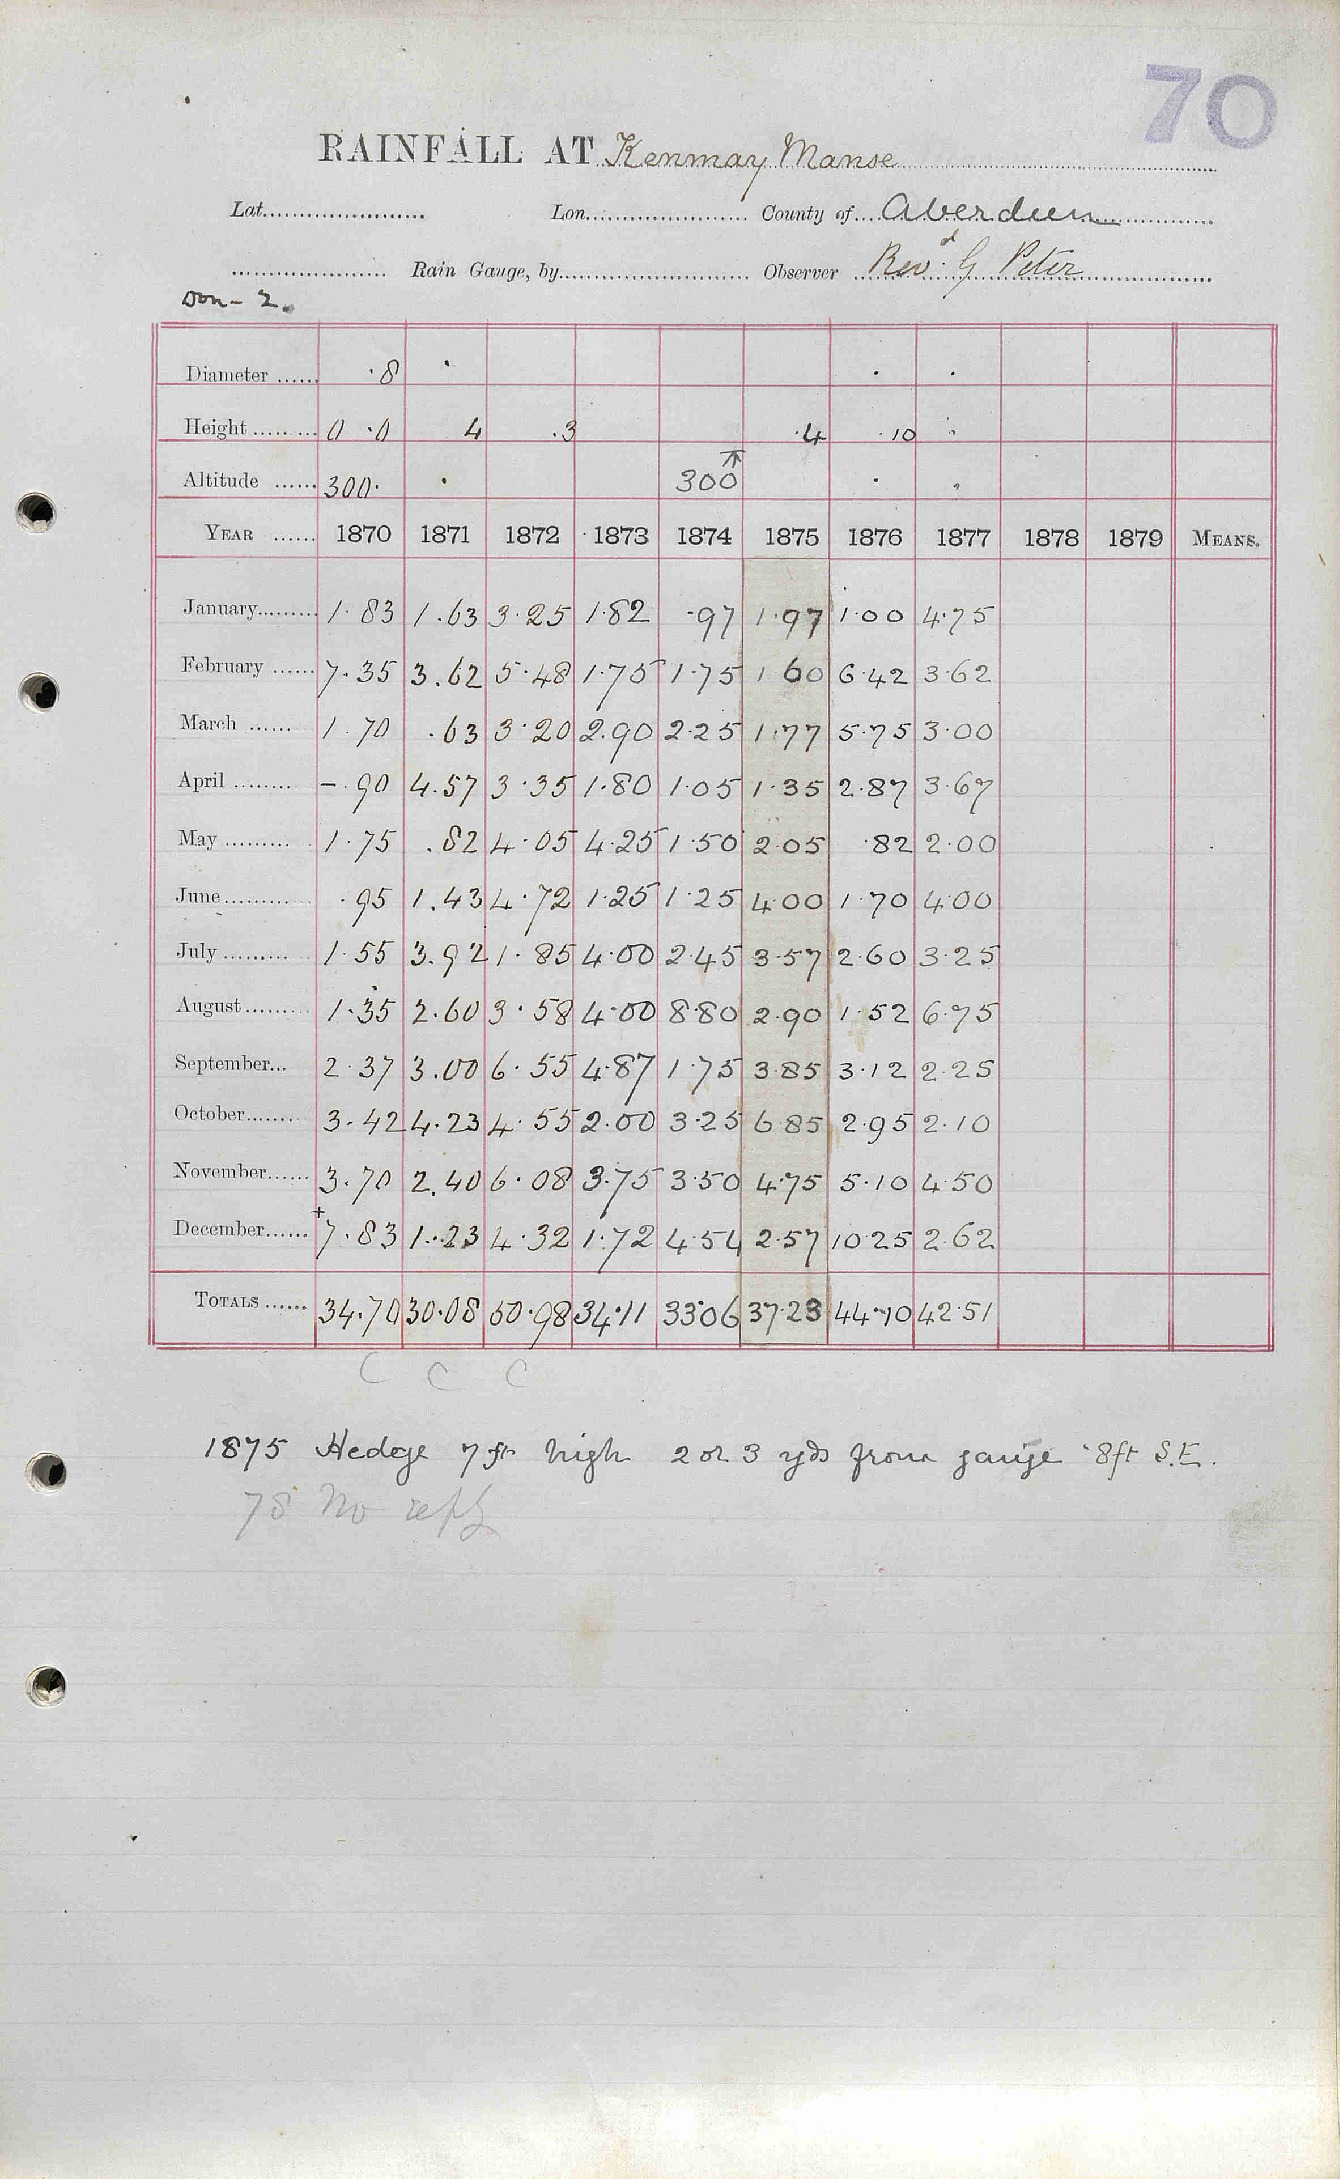 70
RAINFALL AT Kenmay Manse
Lat. Lon. County of Aberdeen
Rain Gauge, by Observer Revd. G Peter
Don - 2.
Diameter ·8
Height 0 ·0 4 ·3 ·4 ·10
Altitude 300· 300
YEAR 1870 1871 1872 1873 1874 1875 1876 1877 1878 1879 MEANS.
January 1·83 1.63 3·25 1·82 ·97 1·97 1·00 4·75
February 7·35 3.62 5·48 1·75 1·75 1 60 6·42 3·62
March 1 70 .63 3·20 2.90 2·25 1·77 5·75 3·00
April -·90 4.57 3·35 1·80 1·05 1·35 2·87 3·67
May 1·75 .82 4·05 4·25 1·50 2·05 ·82 2·00
June ·95 1.43 4·72 1·25 1·25 4·00 1·70 4·00
July 1·55 3.92 1·85 4·00 2·45 3·57 2·60 3·25
August 1·35 2.60 3·58 4·00 8·80 2·90 1·52 6·75
September 2·37 3.00 6·55 4·87 1·75 3·85 3·12 2·25
October 3·42 4.23 4·55 2·00 3·25 6 85 2·95 2·10
November 3·70 2.40 6·08 3·75 3·50 4·75 5·10 4·50
December +7·83 1·23 4·32 1·72 4·54 2·57 10·25 2·62
TOTALS 34·70 30·08 50·98 34·11 33·06 37·23 44·10 42·51
C C C
1875 Hedge 7 ft high 2 or 3 yds from gauge 8ft S.E.
78 No reply